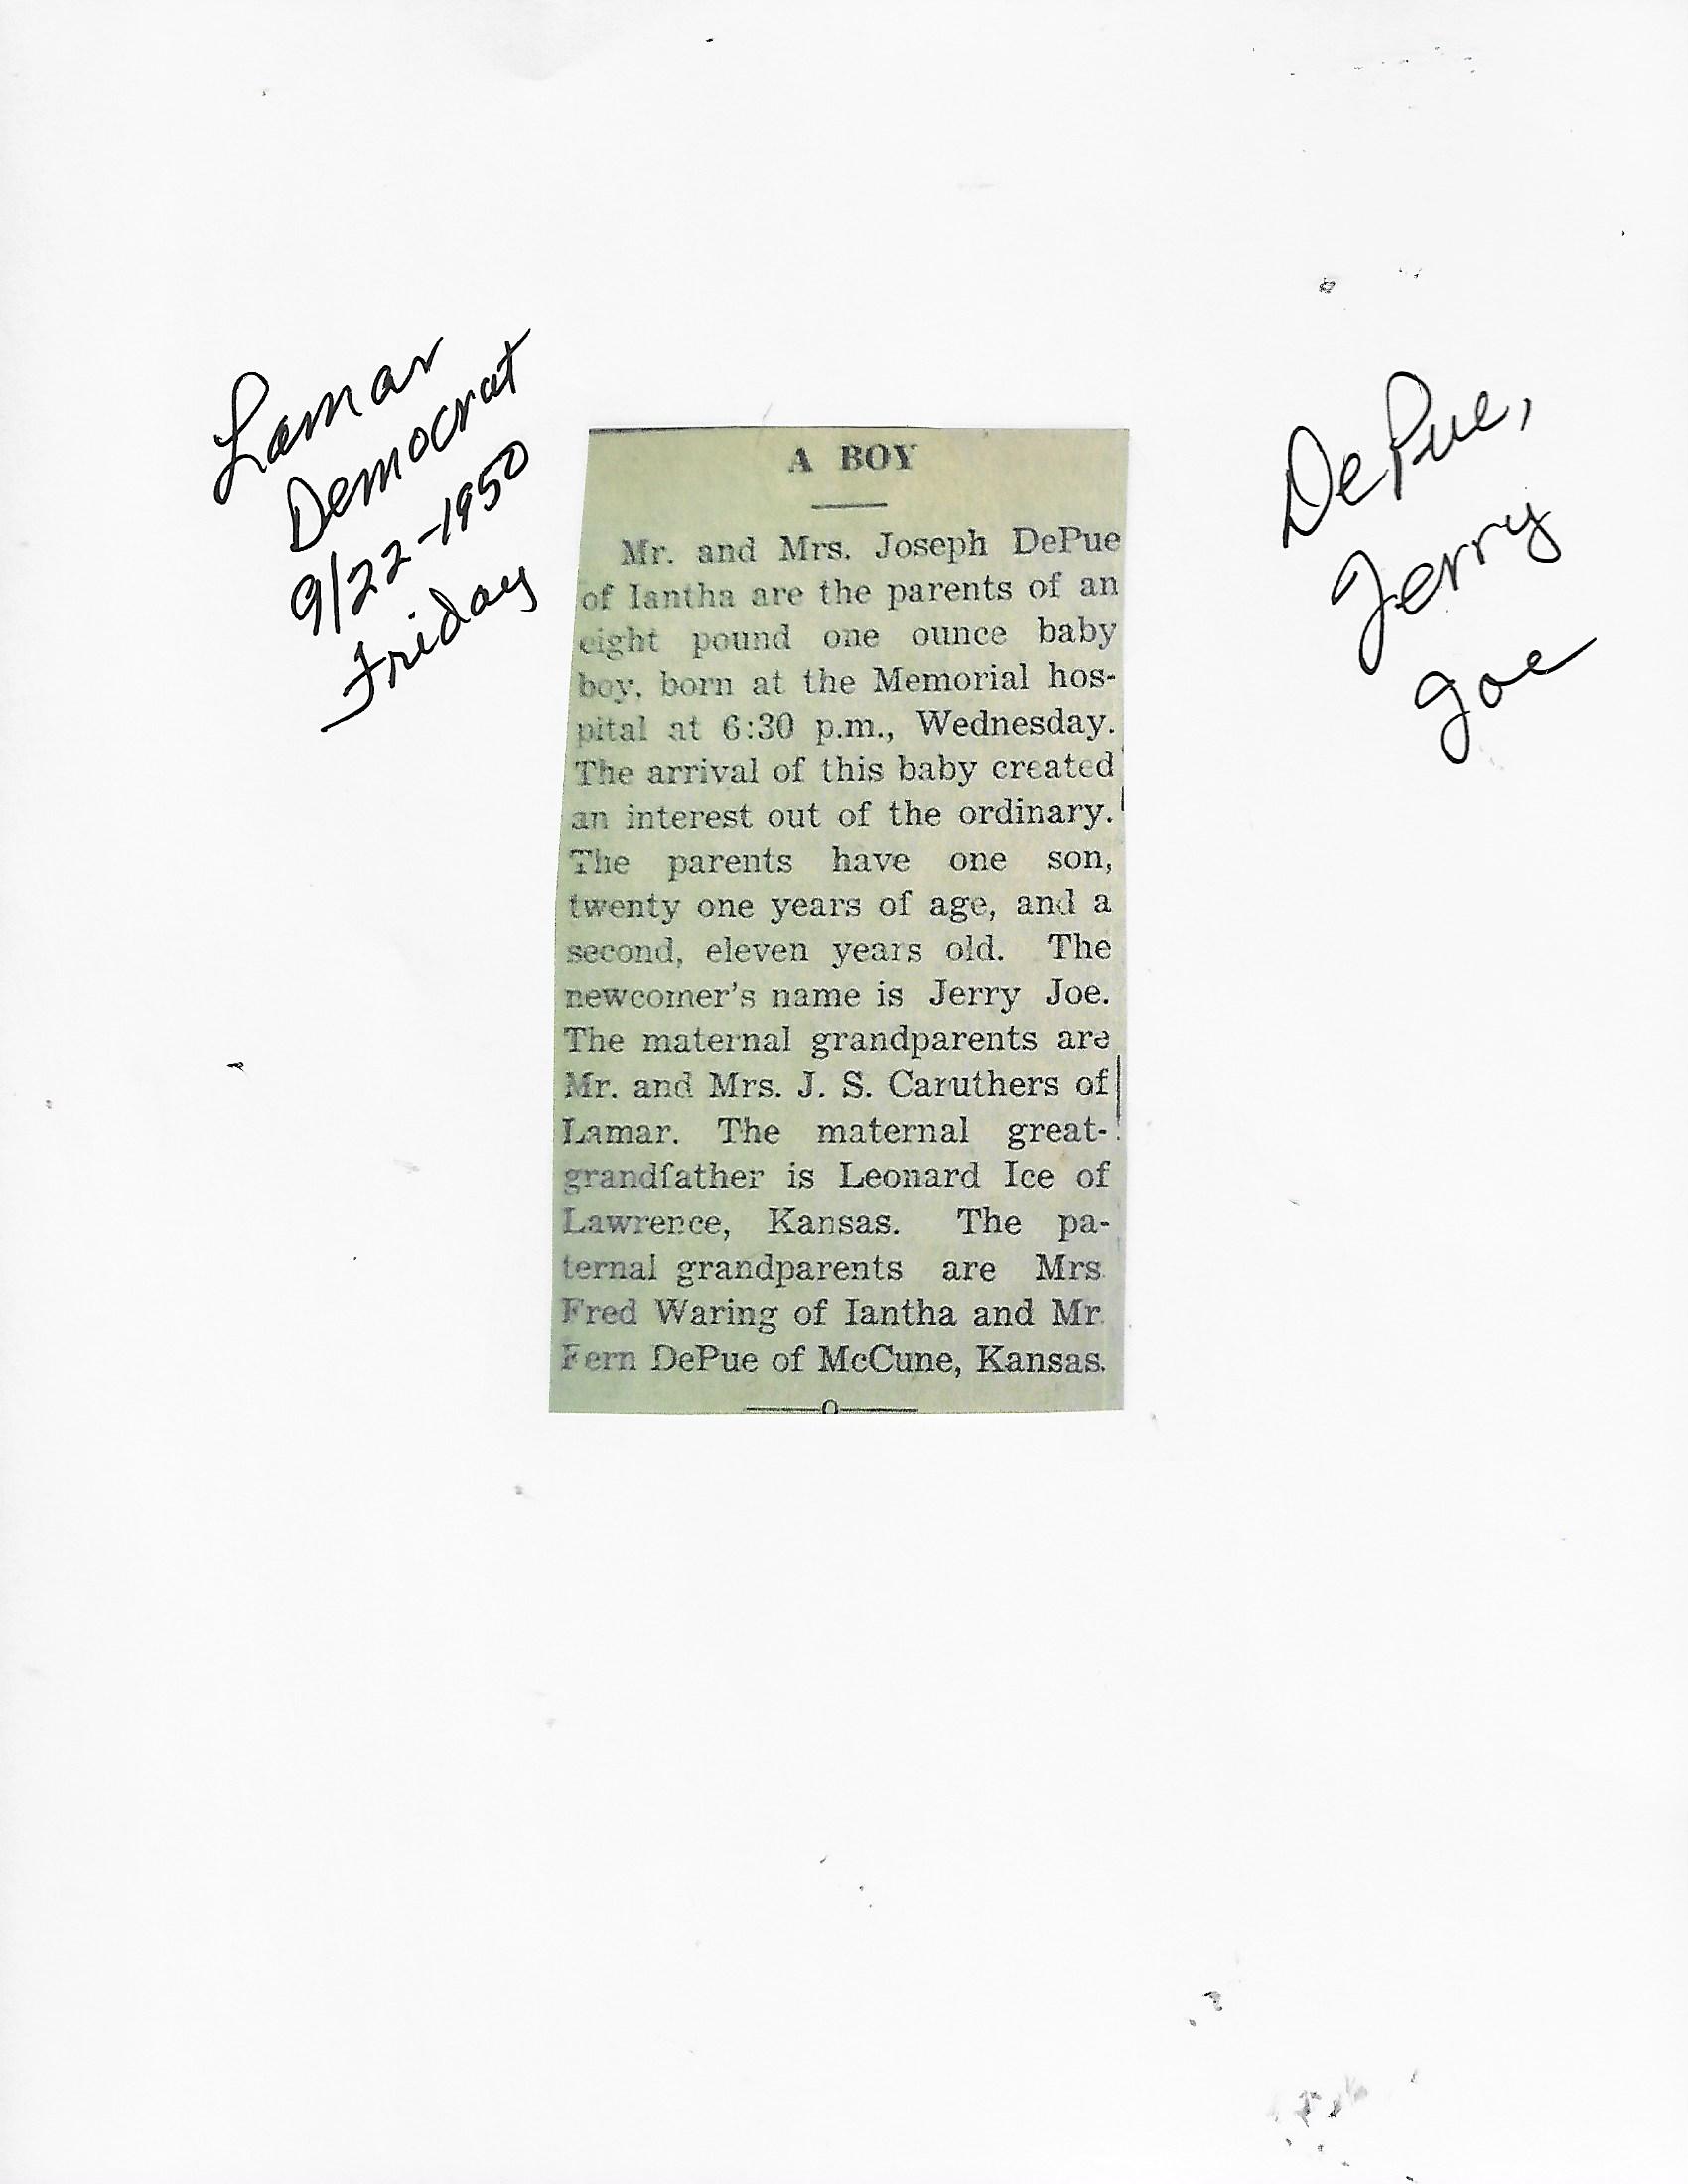 Lamar
Democrat
9/22-1950
Friday
DePue,
Jerry
Joe
A BOY
Mr. and Mrs. Joseph DePue
of Iantha are the parents of an
eight pound one ounce baby
boy, born at the Memorial hos-
pital at 6:30 p.m., Wednesday.
The arrival of this baby created
an interest out of the ordinary.
The parents have one son,
twenty one years of age, and a
second, eleven years old. The
newcomer's name is Jerry Joe.
The maternal grandparents are
Mr. and Mrs. J. S. Caruthers of
Lamar. The maternal great-
grandfather is Leonard Ice of
Lawrence, Kansas. The pa-
ternal grandparents are Mrs.
Fred Waring of Iantha and Mr.
Fern DePue of McCune, Kansas.